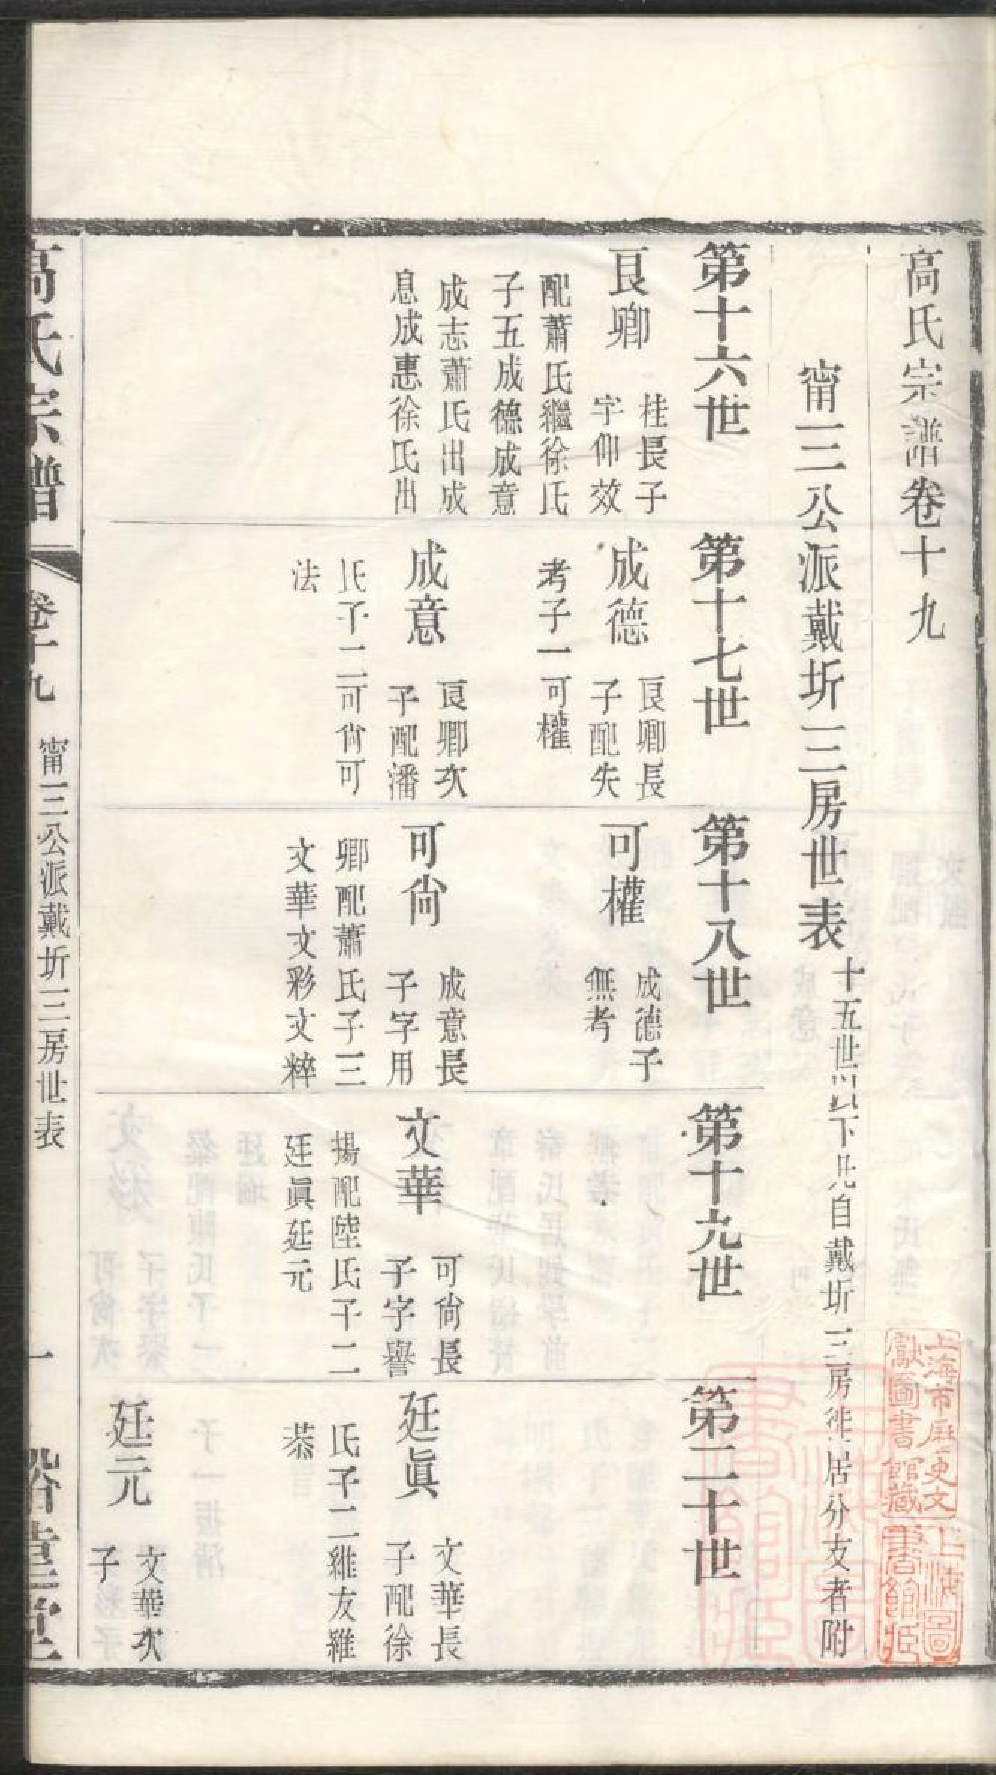 高氏宗譜卷十九
甯三公派戴圻三房世表
十五世以下凡自戴圻三房徙居分支者附
第十六世
良卿
桂長子
字仰效
配蕭氏繼徐氏
子五成德成意
成志蕭氏出成
息成惠徐氏出
第十七世
成德
良卿長
子配失
考子一可權
成意
良卿次
子配潘
氏子二可尙可
法
第十八世
可權
成德子
無考
可尙
成意長
子字用
卿配蕭氏子三
文華文彩文粹
第十九世
文華
可尙長
子字譽
揚配陸氏子二
廷眞廷元
第二十世
廷眞
文華長
子配徐
氏子二維友維
恭
廷元
文華次
子
高氏宗譜
卷十九
甯三公派戴圻三房世表
一
上海市歷史文
獻圖書館藏
上海圖
書館藏